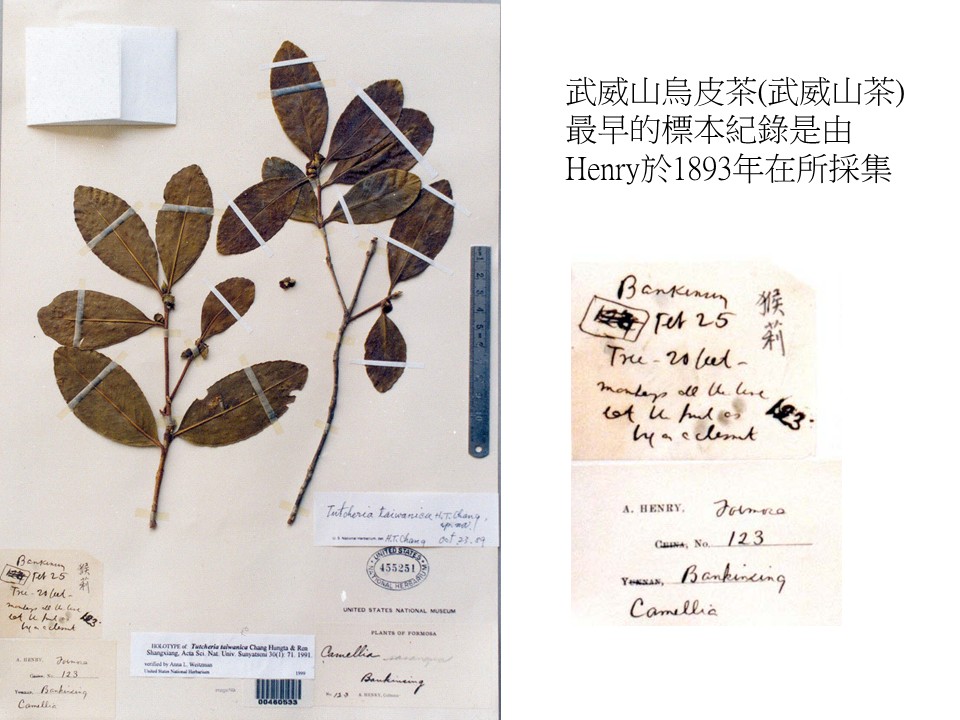 武威山烏皮茶(武威山茶)
最早的標本紀錄是由
Henry於1893年在所採集
Bankinsing
猴莉
123
Feb 25
Tree - 20 feet -
monkeys all the time
eat the fruit as
123.
A. HENRY, Formosa
CHINA, No. 123
YUNNAN, Bankinsing
Camellia
Tutcheria taiwanica H.T. Chang,
sp. nov.!
U. S. National Herbarium, det. H.T. Chang Oct 23. 89
UNITED STATES
455251
NATIONAL HERBARIUM
UNITED STATES NATIONAL MUSEUM
PLANTS OF FORMOSA
Camellia
Bankinsing
No. 123 A. HENRY, Collector
HOLOTYPE of Tutcheria taiwanica Chang Hungta & Ren
Shangxiang, Acta Sci. Nat. Univ. Sunyatseni 30(1): 71. 1991.
verified by Anna L. Weitzman
United States National Herbarium 1999
00460533
Bankinsing
猴莉
Feb 25
Tree - 20 feet -
monkeys all the time
eat the fruit as
123.
A. HENRY, Formosa
CHINA, No. 123
YUNNAN, Bankinsing
Camellia